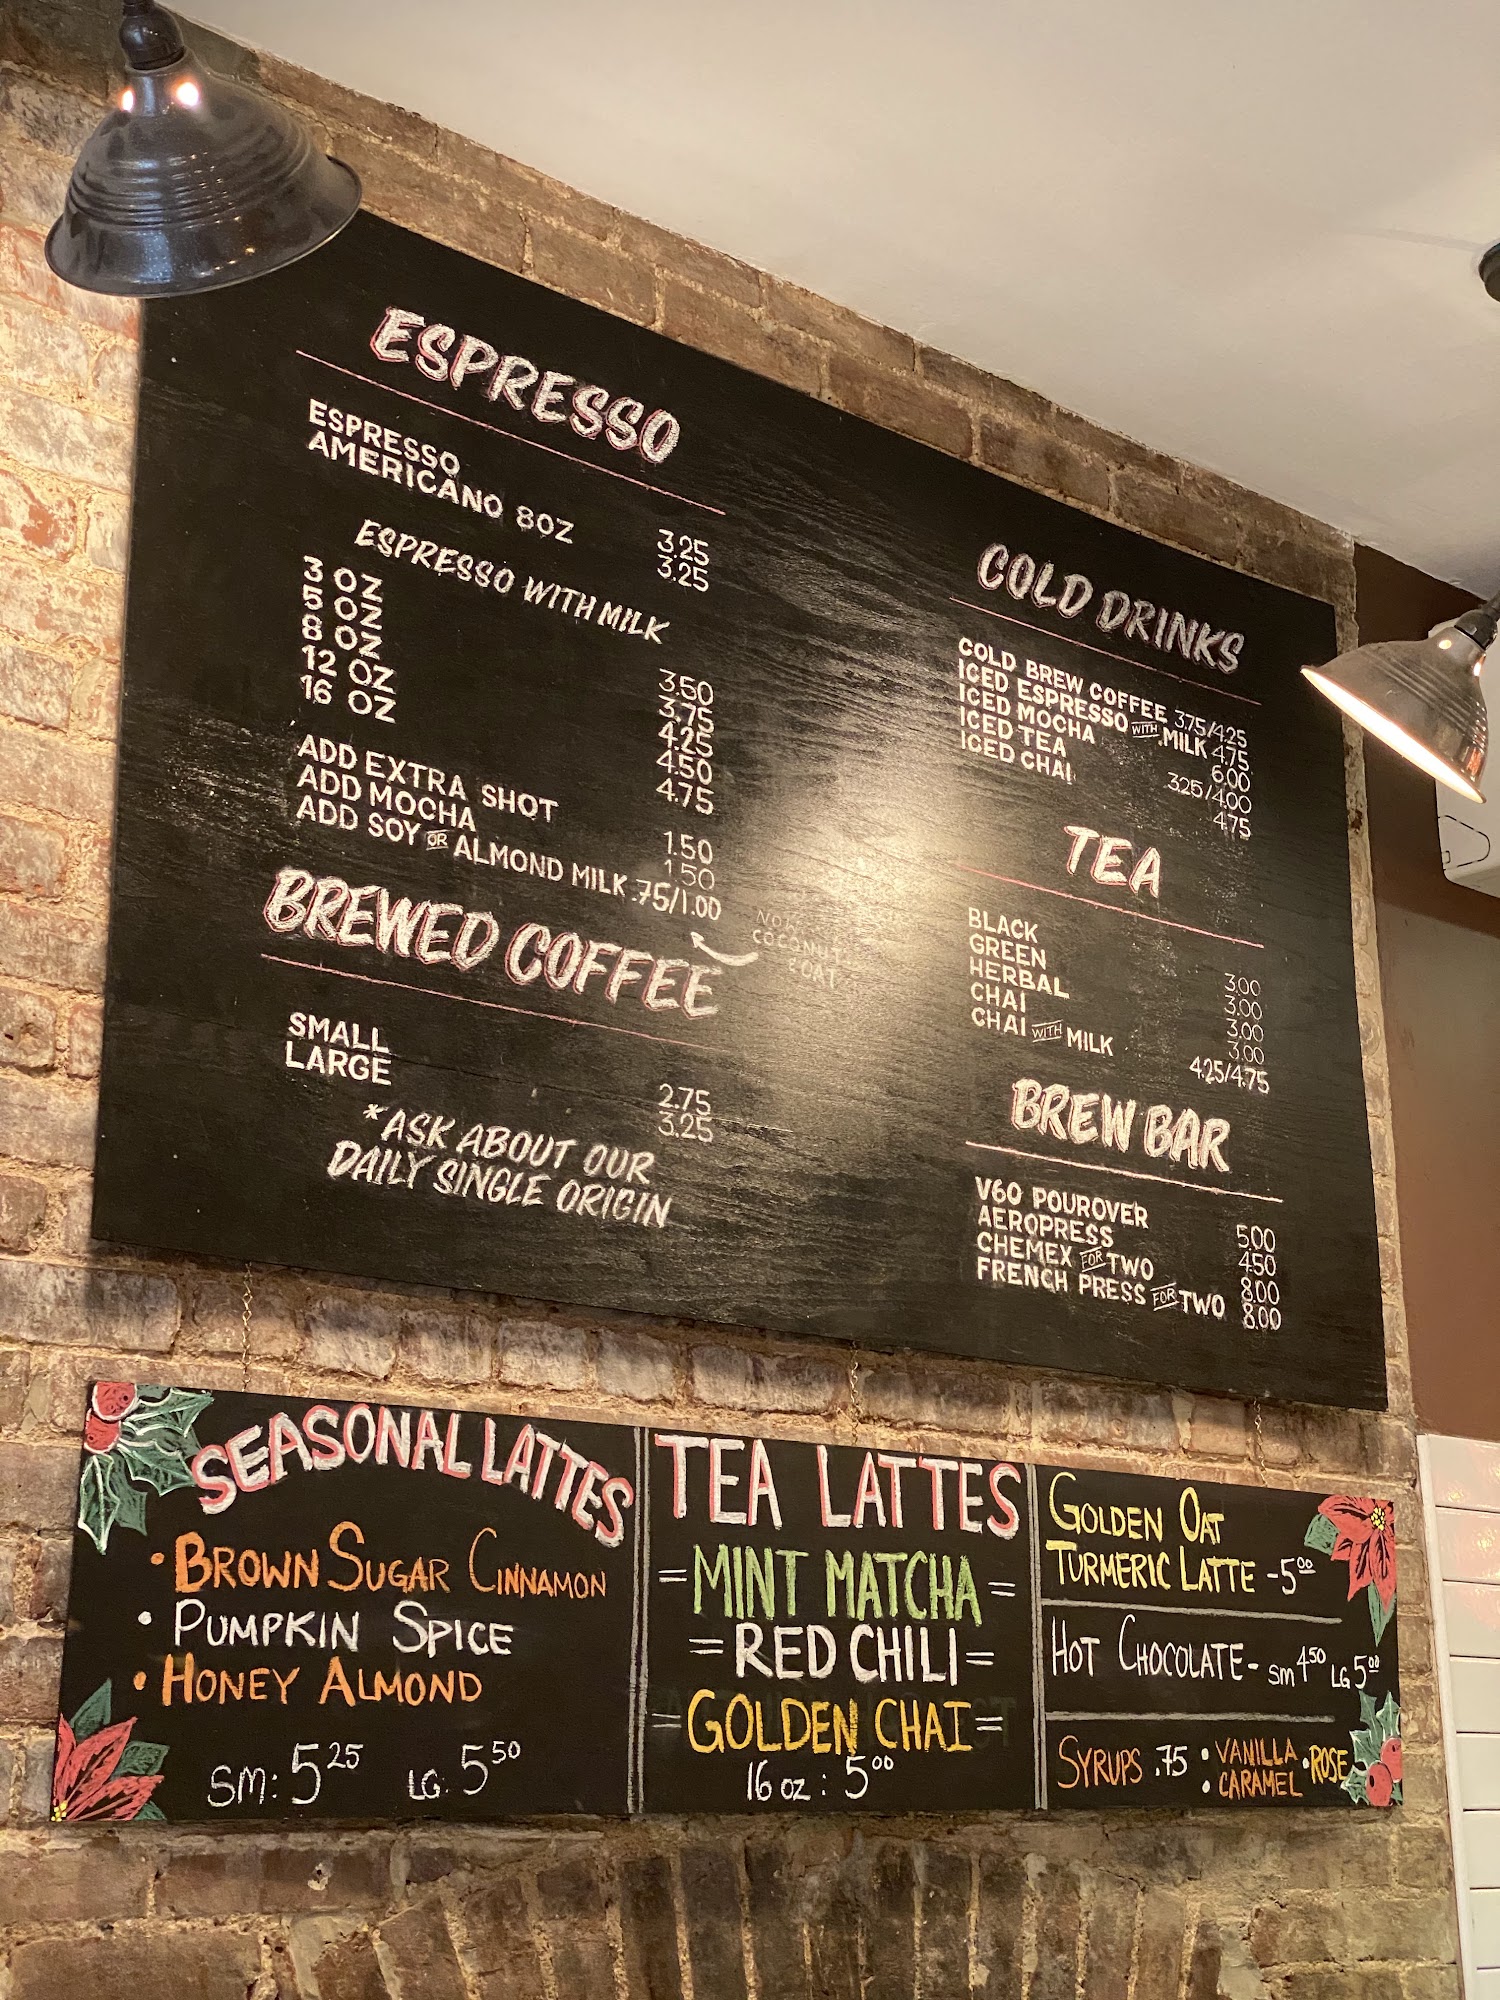 ESPRESSO
ESPRESSO 3.25
AMERICANO 8OZ 3.25
ESPRESSO WITH MILK
3 OZ 3.50
5 OZ 3.75
8 OZ 4.25
12 OZ 4.50
16 OZ 4.75
ADD EXTRA SHOT 1.50
ADD MOCHA 1.50
ADD SOY OR ALMOND MILK .75/1.00
COCONUT
& OAT
BREWED COFFEE
SMALL 2.75
LARGE 3.25
*ASK ABOUT OUR
DAILY SINGLE ORIGIN
COLD DRINKS
COLD BREW COFFEE 3.75/4.25
ICED ESPRESSO WITH MILK 4.75
ICED MOCHA 6.00
ICED TEA 3.25/4.00
ICED CHAI 4.75
TEA
BLACK 3.00
GREEN 3.00
HERBAL 3.00
CHAI 3.00
CHAI WITH MILK 4.25/4.75
BREW BAR
V60 POUROVER 5.00
AEROPRESS 4.50
CHEMEX FOR TWO 8.00
FRENCH PRESS FOR TWO 8.00
SEASONAL LATTES
• BROWN SUGAR CINNAMON
• PUMPKIN SPICE
• HONEY ALMOND
SM: 5 25 LG: 5 50
TEA LATTES
= MINT MATCHA =
= RED CHILI =
= GOLDEN CHAI =
16 OZ : 5 00
GOLDEN OAT
TURMERIC LATTE - 5 00
HOT CHOCOLATE - SM 4 50 LG 5 00
SYRUPS .75 • VANILLA • ROSE
• CARAMEL